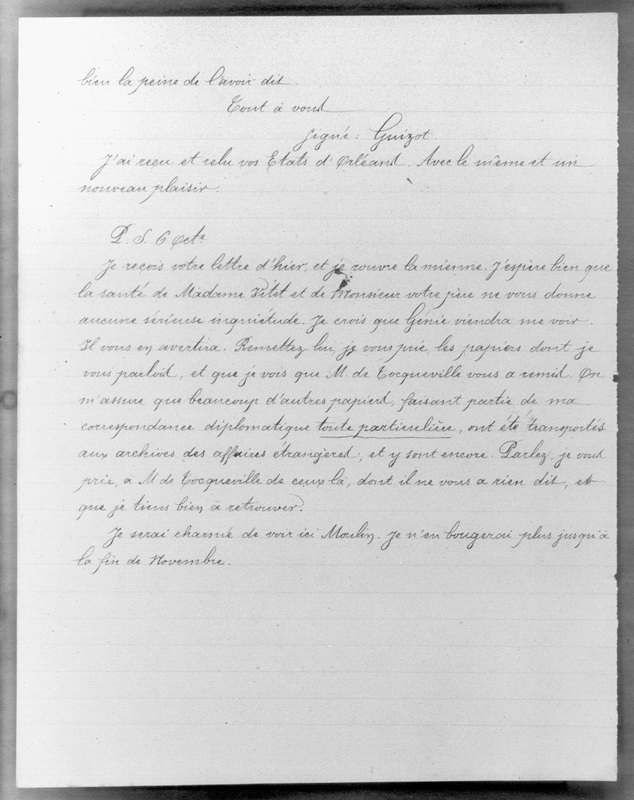 bien la peine de l'avoir dit.
Tout à vous
signé : Guizot.
J'ai reçu et relu vos Etats d'Orléans. Avec le même et un
nouveau plaisir.
P. S. 6 Octe
Je reçois votre lettre d'hier, et je rouvre la mienne. J'espère bien que
la santé de Madame Vitet et de Monsieur votre père ne vous donne
aucune sérieuse inquiétude. Je crois que Génie viendra me voir.
Il vous en avertira. Remettez lui, je vous prie, les papiers dont je
vous parlois, et que je vois que M de Tocqueville vous a remis. On
m'assure que beaucoup d'autres papiers, faisant partie de ma
correspondance diplomatique toute particulière, ont été transportés
aux archives des affaires étrangères, et y sont encore. Parlez, je vous
prie, à M de Tocqueville de ceux là, dont il ne vous a rien dit, et
que je tiens bien à retrouver.
Je serai charmé de voir ici Moulin. Je n'en bougerai plus jusqu'à
la fin de Novembre.